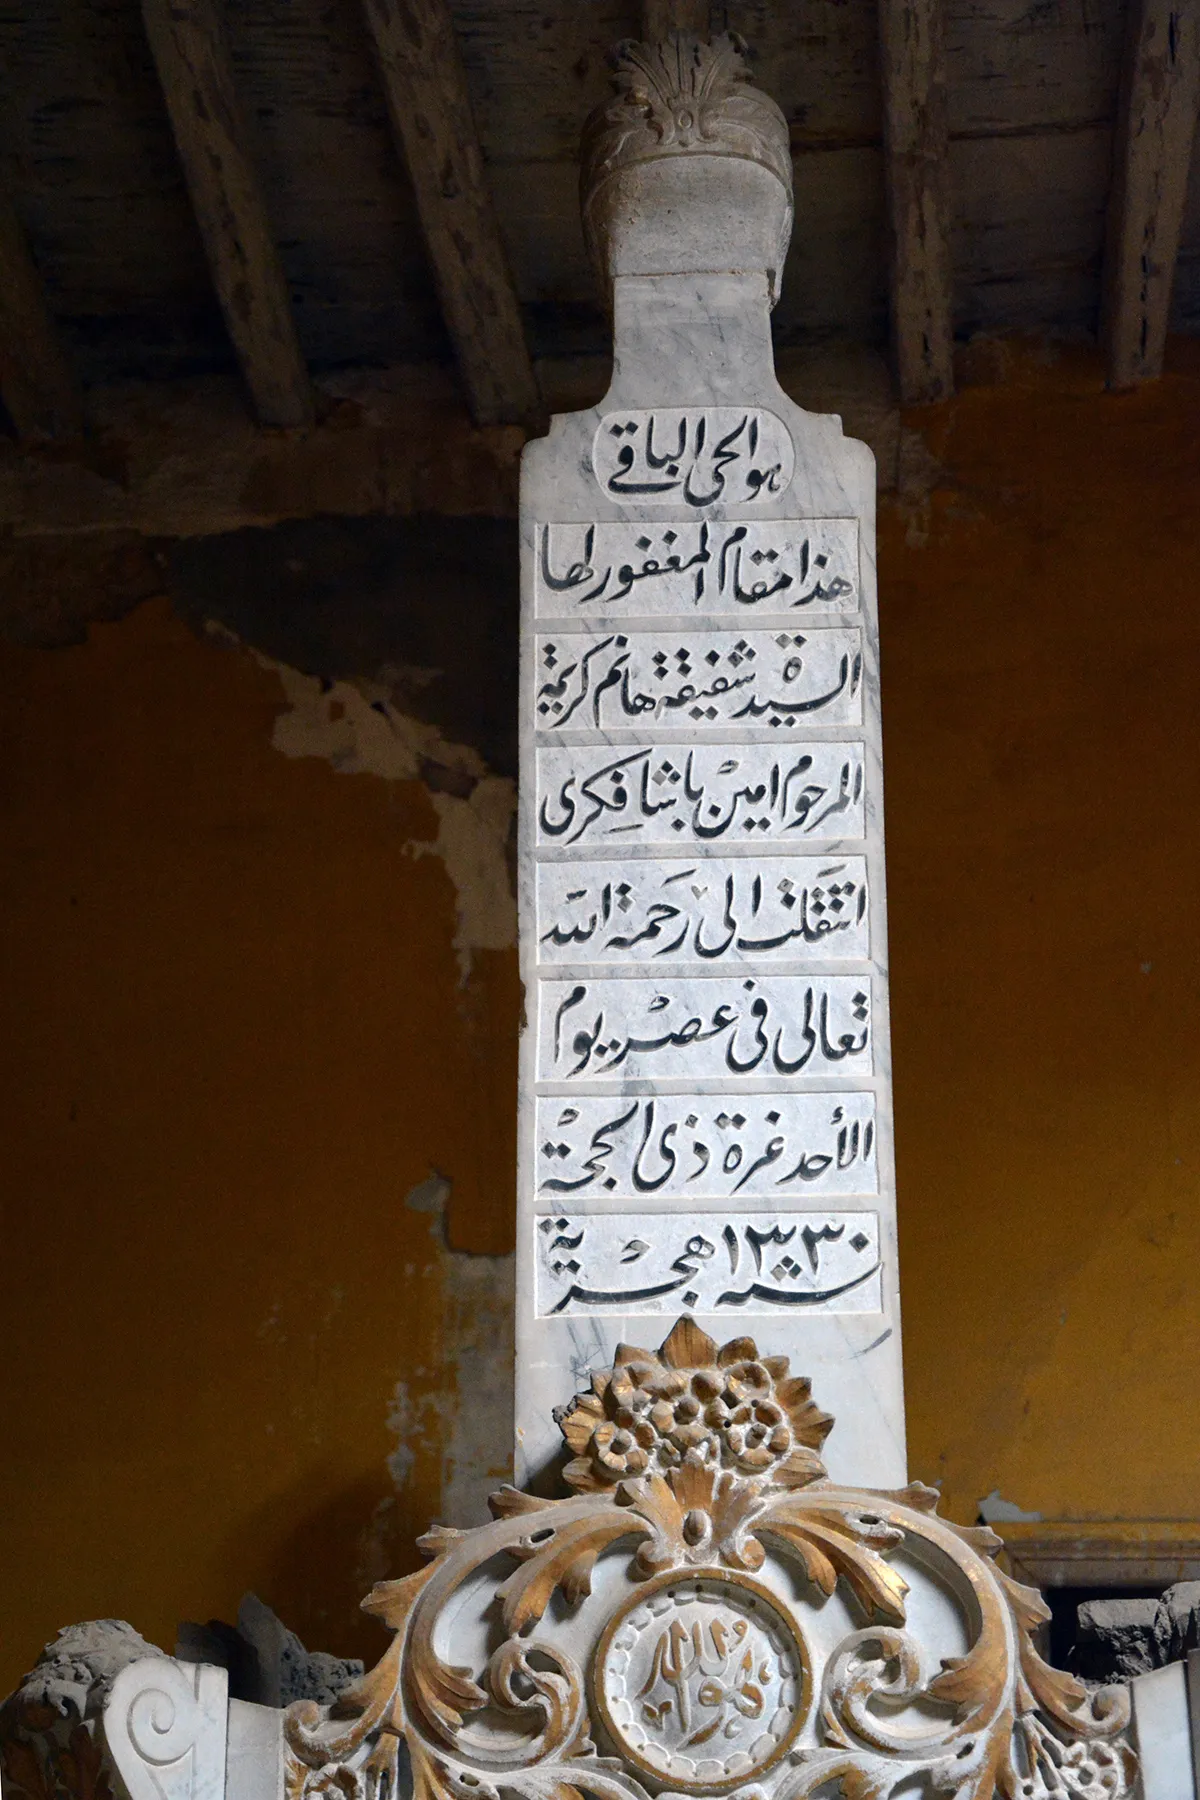 هو الحي الباقي
هذا مقام المغفور لها
السيدة شفيقة هانم كريمة
المرحوم امين باشا فكرى
انتقلت الى رحمة الله
تعالى فى عصر يوم
الأحد غرة ذى الحجة
سنة ١٣٣٠ هجرية
هو الله